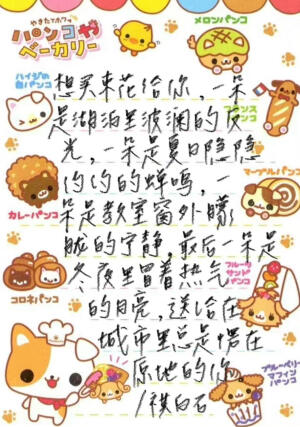 やきたて ホワッ
パンコや
ベーカリー
メロンパンコ
ハイジの
白パンコ
フランス
パンコ
カレーパンコ
マーブルパンコ
コロネパンコ
フルーツ
サンド
パンコ
ブルーベリー
マフィン
パンコ
想买束花给你，一朵
是湖泊里波澜的夜
光，一朵是夏日隐隐
约约的蝉鸣，一
朵是教室窗外朦
胧的宁静，最后一朵是
冬夜里冒着热气
的月亮，送给在
城市里总是愣在
原地的你
/祺白石